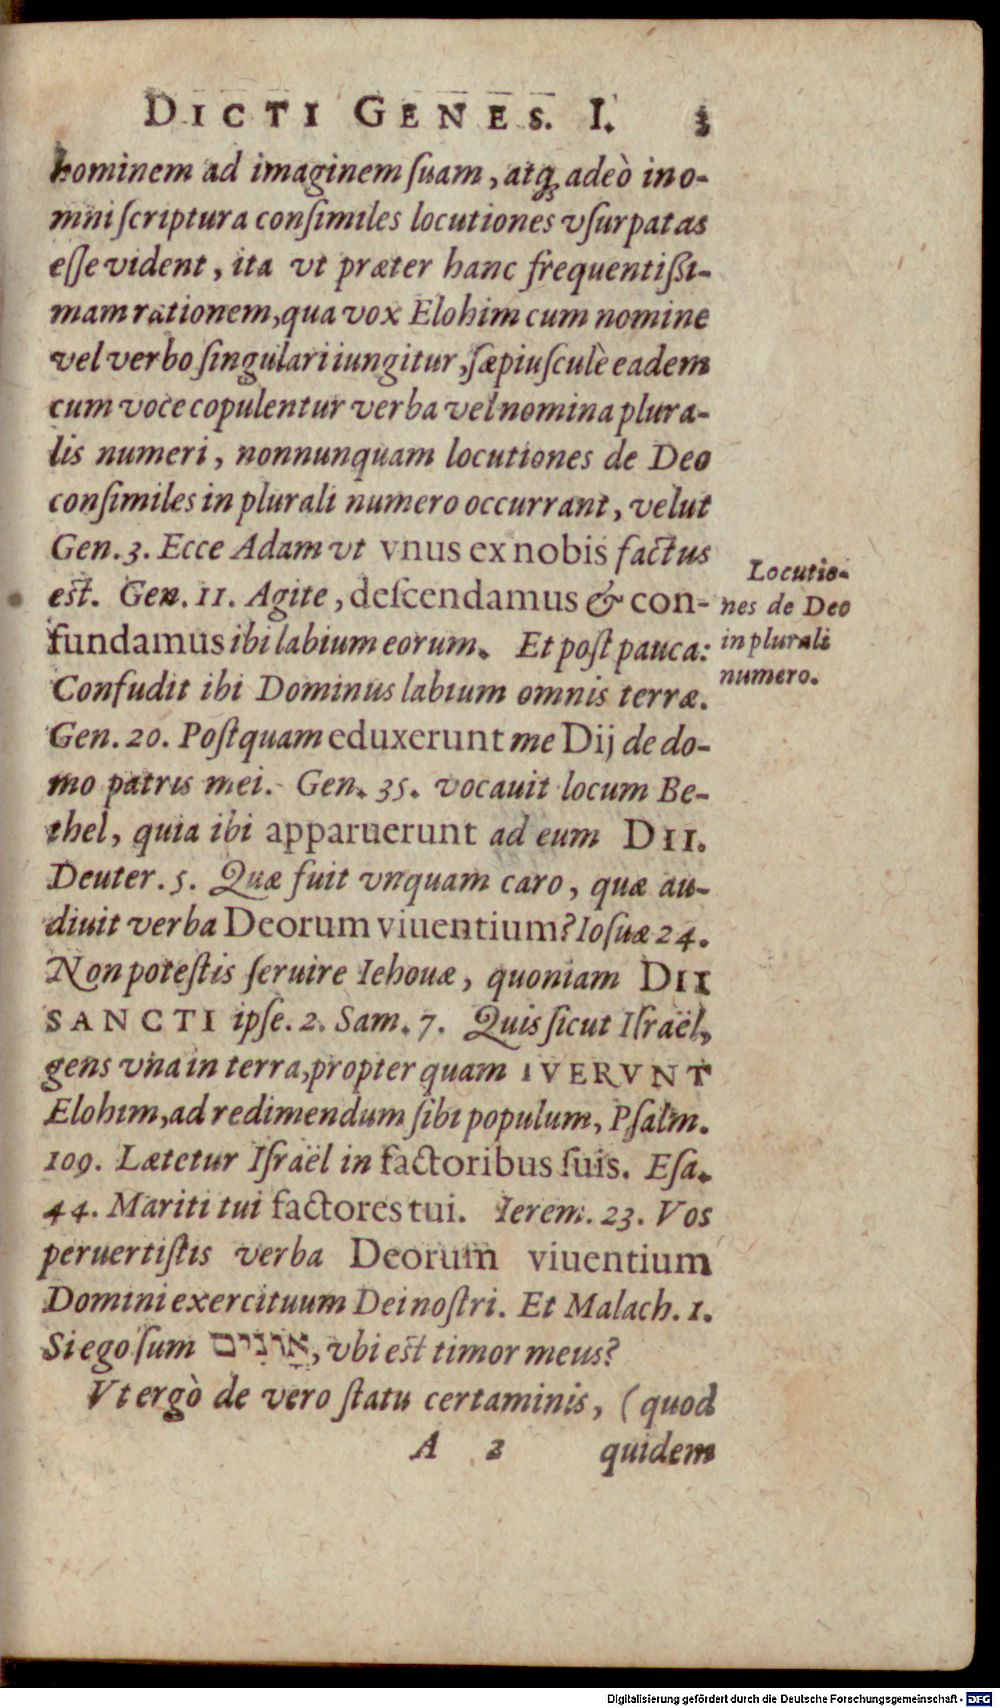 DICTI GENES. I. 3
hominem ad imaginem ſuam, atq́; adeò in o-
mni ſcriptura conſimiles locutiones vſurpatas
eſſe vident, ita vt præter hanc frequentißi-
mam rationem, qua vox Elohim cum nomine
vel verbo ſingulari iungitur, ſæpiuſculè eadem
cum voce copulentur verba vel nomina plura-
lis numeri, nonnunquam locutiones de Deo
conſimiles in plurali numero occurrant, velut
Gen. 3. Ecce Adam vt vnus ex nobis factus
est. Gen. 11. Agite, deſcendamus & con-
fundamus ibi labium eorum. Et poſt pauca:
Confudit ibi Dominus labium omnis terræ.
Gen. 20. Poſtquam eduxerunt me Dij de do-
mo patris mei. Gen. 35. vocauit locum Be-
thel, quia ibi apparuerunt ad eum DII.
Deuter. 5. Quæ fuit vnquam caro, quæ au-
diuit verba Deorum viuentium? Ioſuæ 24.
Non poteſtis ſeruire Iehouæ, quoniam DII
SANCTI ipſe. 2. Sam. 7. Quis ſicut Iſraël,
gens vna in terra, propter quam IVERVNT
Elohim, ad redimendum ſibi populum, Pſalm.
109. Lætetur Iſraël in factoribus ſuis. Eſa.
44. Mariti tui factores tui. Ierem. 23. Vos
peruertiſtis verba Deorum viuentium
Domini exercituum Dei noſtri. Et Malach. 1.
Si ego ſum אֲדֹנִים, vbi est timor meus?
Vt ergò de vero ſtatu certaminis, (quod
A 2 quidem
Locutio-
nes de Deo
in plurali
numero.
Digitalisierung gefördert durch die Deutsche Forschungsgemeinschaft - DFG